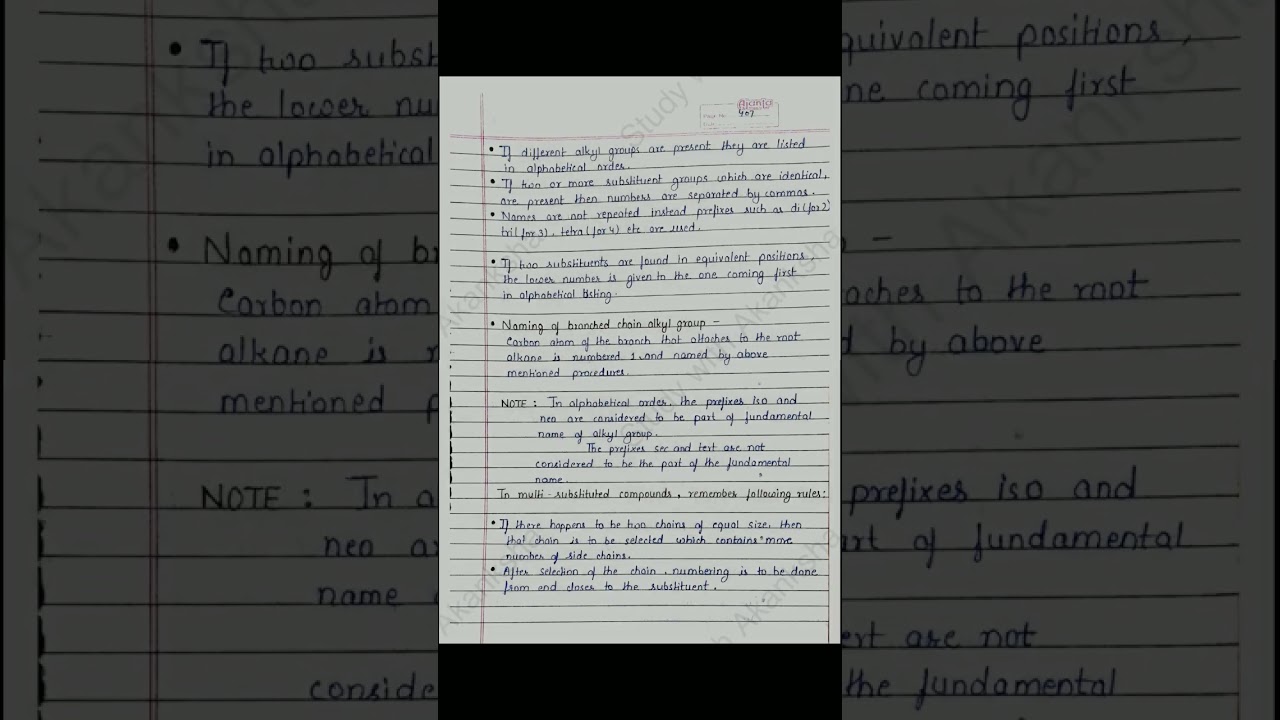 Ajanta
Page No. 407
Date
• If different alkyl groups are present they are listed
in alphabetical order.
• If two or more substituent groups which are identical,
are present then numbers are separated by commas.
• Names are not repeated instead prefixes such as di(for 2)
tri(for 3), tetra(for 4) etc are used.
• If two substituents are found in equivalent positions,
the lower number is given to the one coming first
in alphabetical listing.
• Naming of branched chain alkyl group -
Carbon atom of the branch that attaches to the root
alkane is numbered 1 and named by above
mentioned procedures.
NOTE : In alphabetical order, the prefixes iso and
neo are considered to be part of fundamental
name of alkyl group.
The prefixes sec and tert are not
considered to be the part of the fundamental
name.
In multi-substituted compounds, remember following rules:
• If there happens to be two chains of equal size, then
that chain is to be selected which contains more
number of side chains.
• After selection of the chain, numbering is to be done
from end closer to the substituent.
Study with Akanksha